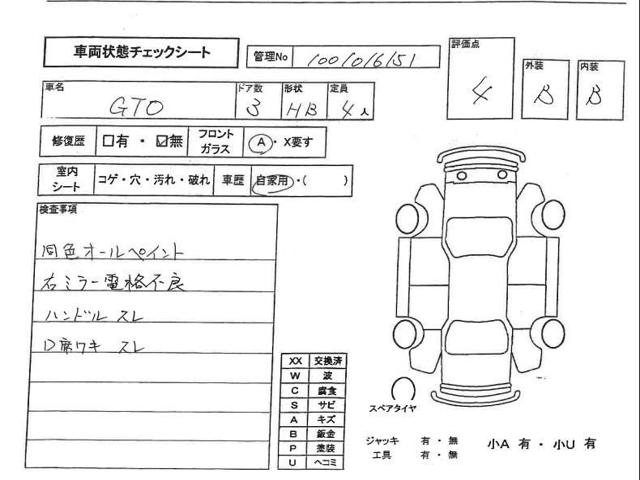 車両状態チェックシート
管理No 1001016151
評価点 4
外装 B
内装 B
車名 GTO
ドア数 3
形状 HB
定員 4人
修復歴 □有・☑無
フロントガラス A・X要す
室内シート コゲ・穴・汚れ・破れ
車歴 自家用・( )
検査事項
同色オールペイント
右ミラー電格不良
ハンドル スレ
D席ワキ スレ
XX 交換済
W 波
C 腐食
S サビ
A キズ
B 鈑金
P 塗装
U ヘコミ
スペアタイヤ
ジャッキ 有・無
工具 有・無
小A 有・小U 有